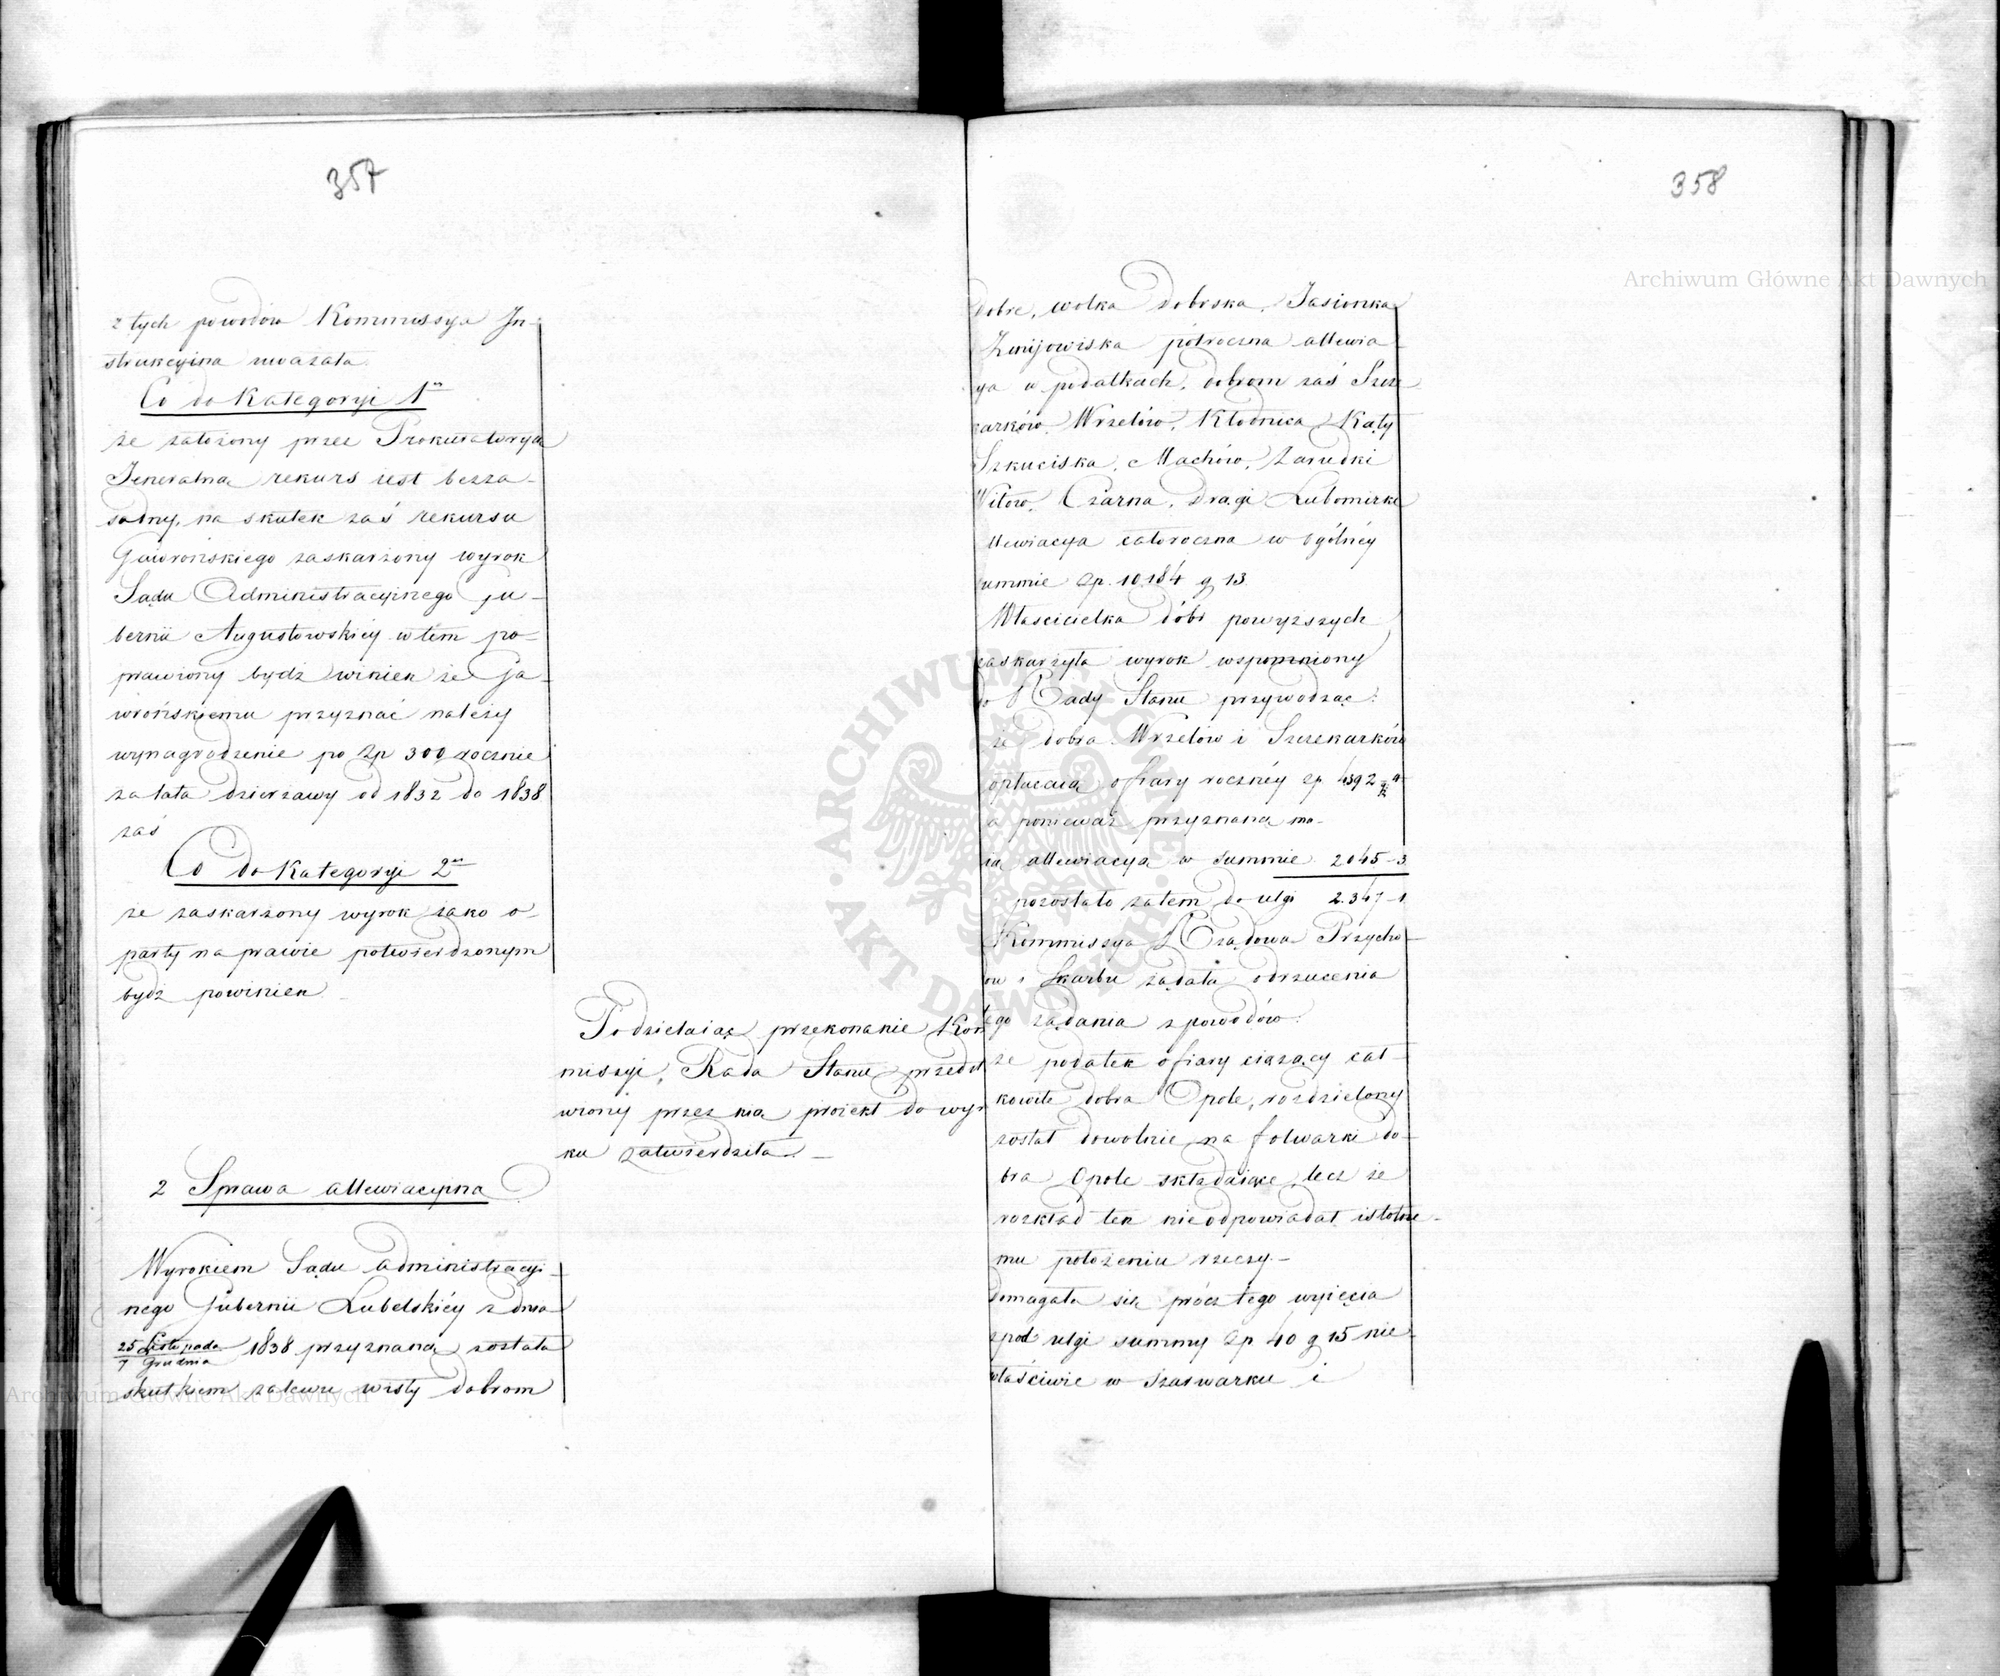 357
z tych powodów Kommissya In-
strukcyina uważała
Co do Kategoryi 1ᵉʸ
że założony przez Prokuratoryą
Jeneralną rekurs iest bezza-
sadny, na skutek zaś rekursu
Gaworońskiego zaskarżony wyrok
Sądu Administracyinego gu-
bernii Augustowskiéy w tém po-
prawiony bydź winien że Ga-
wrońskiemu przyznać należy
wynagrodzenie po Zp 300 rocznie
za lata dzierzawy od 1832 do 1838
zaś
Co do Kategoryi 2ᵉʸ
że zaskarżony wyrok iako o-
party na prawie potwierdzonym
bydź powinien
Podzielaiąc przekonanie Kom
missyi, Rada Stanu przedst
wiony przez nią proiekt do wyr
ku zatwierdziła. —
2 Sprawa allewiacyina
Wyrokiem Sądu administracyi-
nego Gubernii Lubelskiéy z dnia
25 Listopada / 7 Grudnia 1838 przyznaną została
skutkiem zalewu wisły dobrom
358
Dobre, wolka dobrska, Jasionka
Żmijowiska półroczna allewia-
ya w podatkach, dobrom zaś Szcze
karków, Wrzelów, Kłodnica, Kąty
Szkuciska, Machów, Zarudki
Witow, Czarna, Dragi Lubomirka
llewiacya całoroczna w ogólnéy
summie Zp. 10,184 g 13.
Właścicielka dóbr powyższych
zaskarżyła wyrok wspomniony
do Rady Stanu przywodząc:
że dobra Wrzelów i Szczekarków
opłacaią ofiary rocznéy zp. 4392
a ponieważ przyznaną ma-
ią allewiacyą w summie 2045-3
pozostało zatem do ulgi 2.347-1
Kommissya Rządowa Przycho-
ów i Skarbu żądała odrzucenia
tego żądania z powodów:
że podatek ofiary ciążący cał-
kowite dobra Opole, rozdzielony
został dowolnie na folwarki do-
bra Opole składaiące, lecz że
rozkład ten nieodpowiadał istotne-
mu położeniu rzeczy. —
domagała się prócz tego wyięcia
z pod ulgi summy Zp. 40 g 15 nie-
właściwie w szarwarku i
Archiwum Główne Akt Dawnych
Archiwum Główne Akt Dawnych
ARCHIWUM GŁÓWNE AKT DAWNYCH